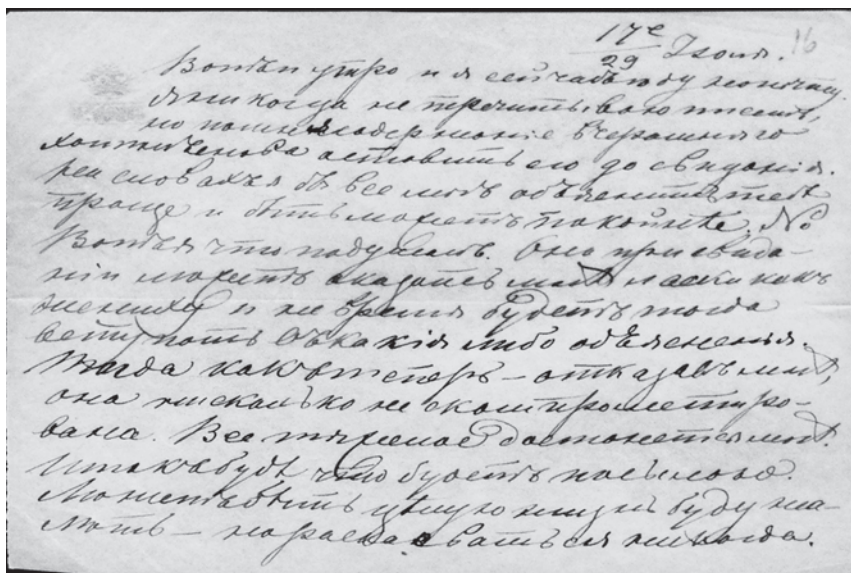 17е/29 Июля. 16
Вотъ и утро и я сейчасъ иду на почту.
Я никогда не перечитываю писемъ,
но помня содержаніе вчерашняго
хотѣлъ снова оставить его до свиданія.
На словахъ я бы все могъ объяснить тебѣ
проще и быть можетъ покойнѣе. Но
Вотъ я что подумалъ. Она при свида-
ніи можетъ оказать мнѣ ласки какъ
жениху и не время будетъ тогда
вступать въ какія либо объясненья.
Тогда какъ теперь – отказавъ мнѣ,
она нисколько не скомпрометиро-
вана. Все тяжелое достанется мнѣ.
Итакъ будь что будетъ посылаю.
Можетъ быть цѣлую жизнь буду жа-
лѣть – но раскаиваться никогда.